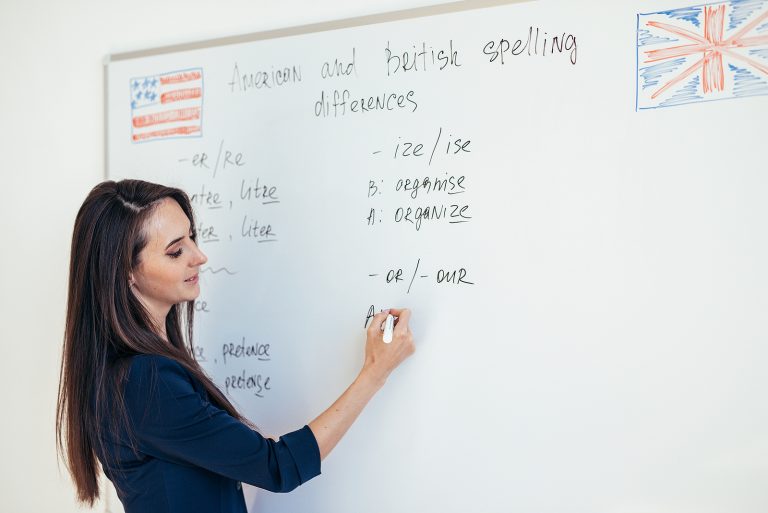 American and British spelling
differences
-er/re
ntre, litre
ter, liter
ce
nce, pretence
pretense
- ize/ise
B: organise
A: organize
- or/-our
A: